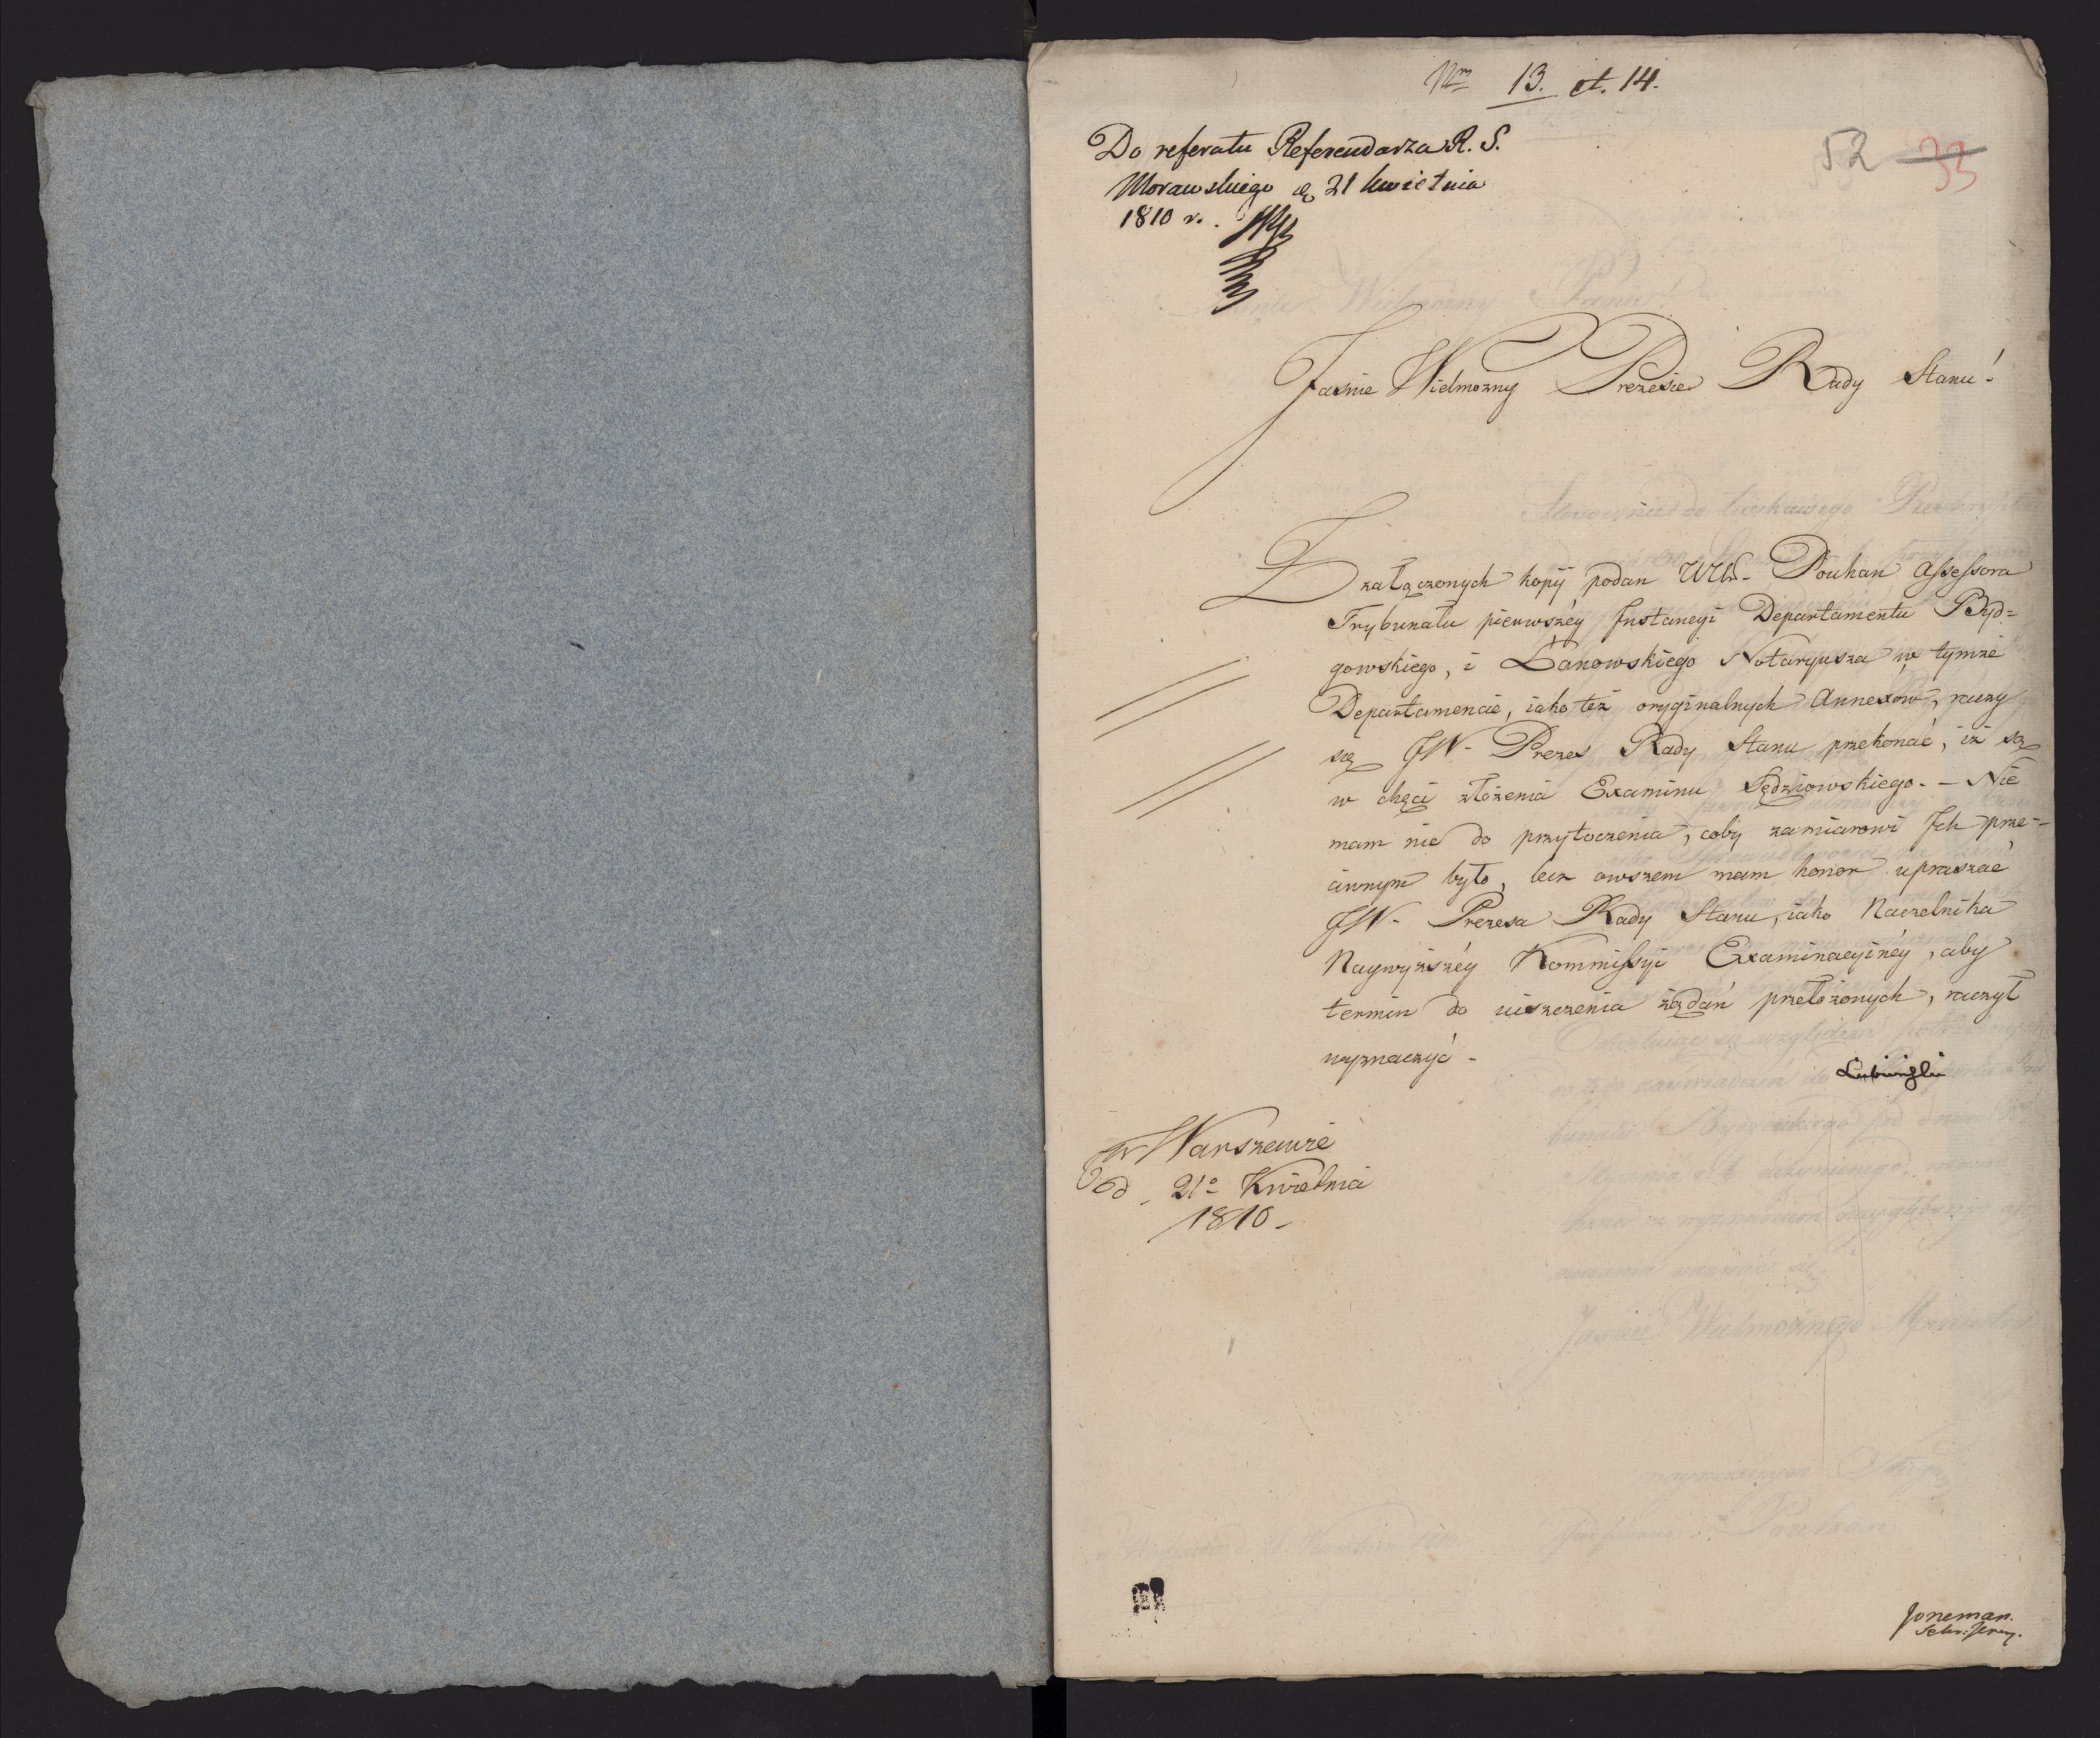 Nro 13. et. 14.
52 33
Do referatu Referendarza R. S.
Morawskiego d. 21 kwietnia
1810 r.
Jaśnie Wielmożny Prezesie Rady Stanu!
Z załączonych kopij podań WW. Pouhan Assessora
Trybunału pierwszéy Instancyi Departamentu Byd=
gowskiego, i Łanowskiego Notaryusza w tymże
Departamencie, iako też oryginalnych Annexow, raczy
się JW. Prezes Rady Stanu przekonać, iż są
w chęci złożenia Examinu Sędziowskiego. – Nie
mam nic do przytoczenia, coby zamiarowi Ich prze=
ciwnym było, lecz owszem mam honor upraszać
JW. Prezesa Rady Stanu, iako Naczelnika
Naywyższéy Kommissyi Examinacyinéy, aby
termin do uiszczenia żądań przełożonych, raczył
wyznaczyć.
Lubieński
w Warszawie
d. 21º Kwietnia
1810.
Joneman.